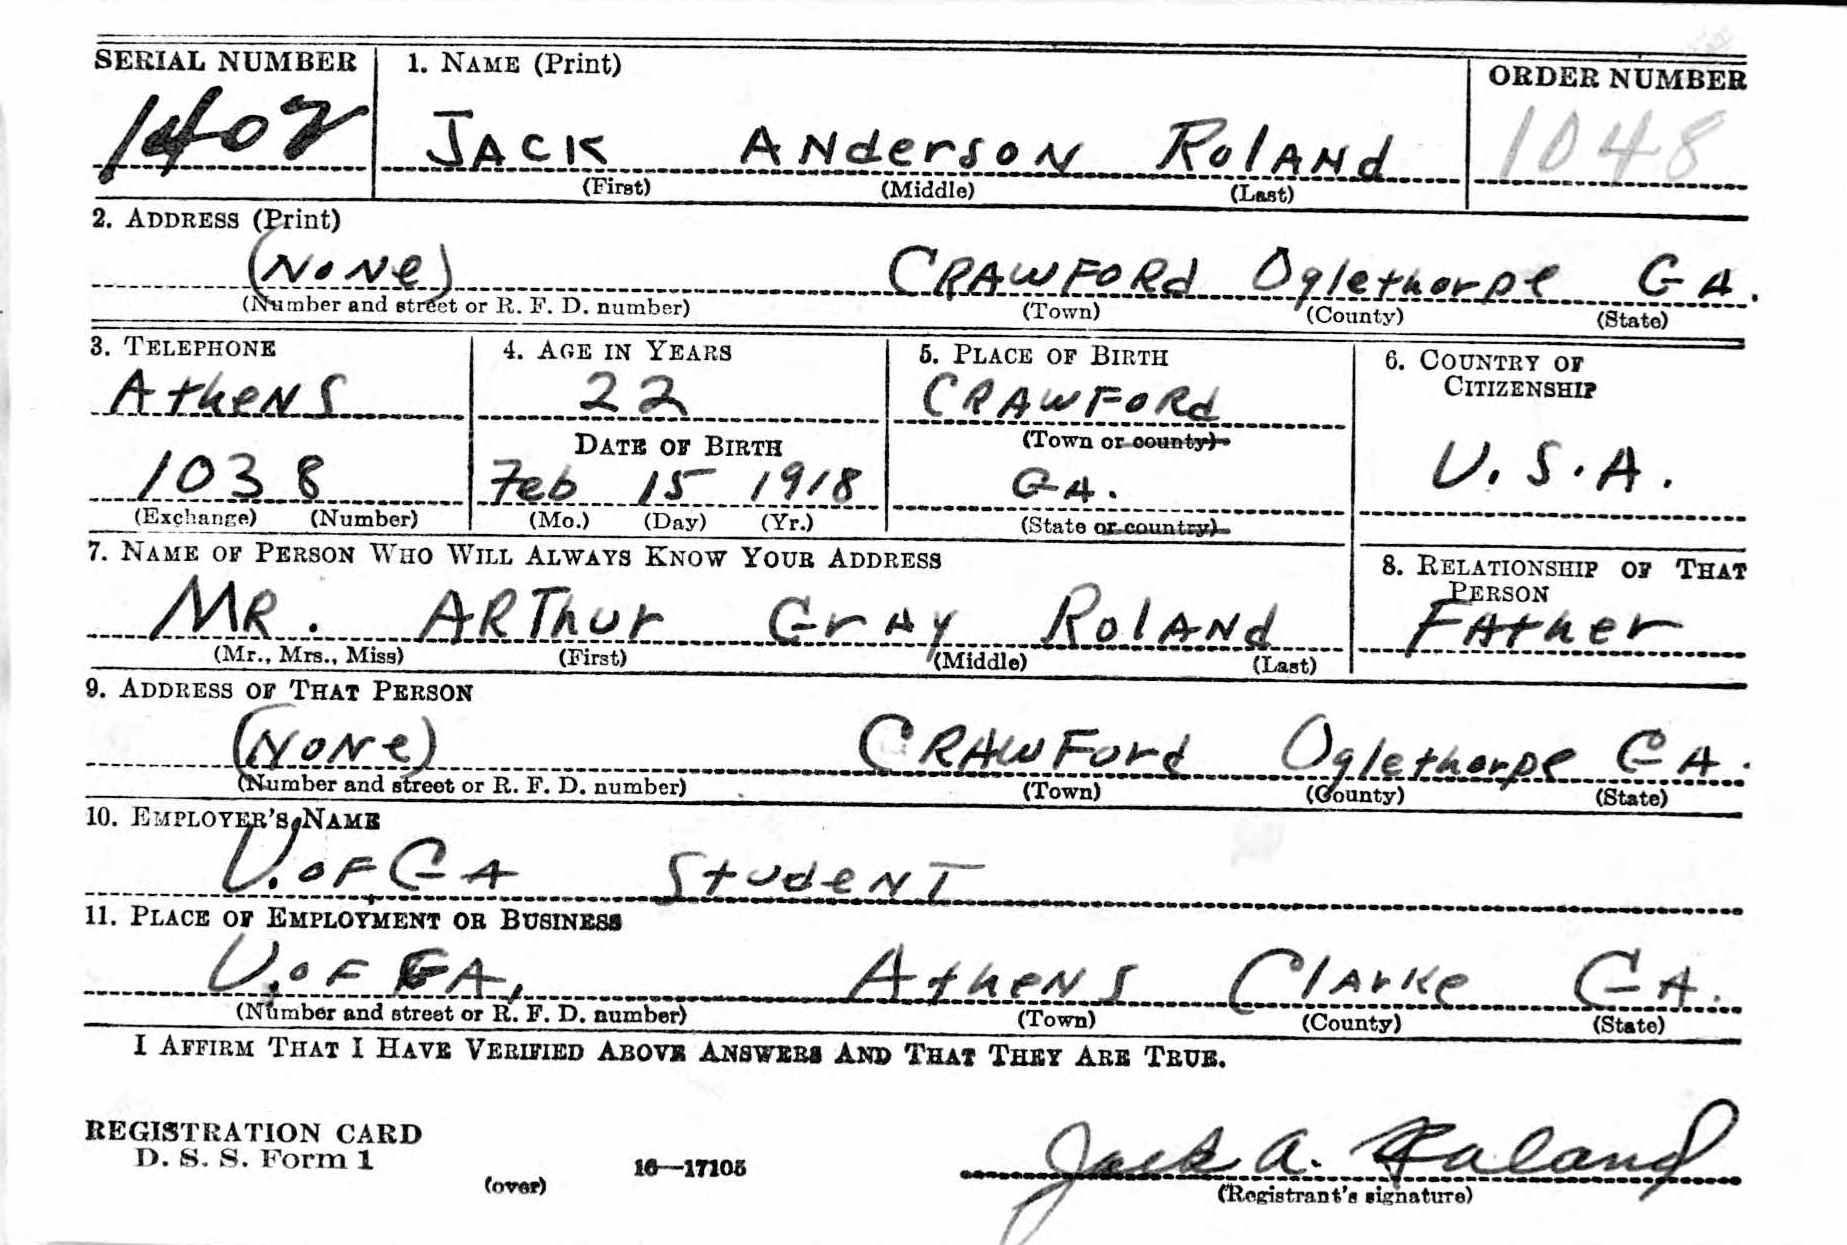 SERIAL NUMBER 1. NAME (Print) ORDER NUMBER
1402 JACK ANderson RolANd 1048
(First) (Middle) (Last)
2. ADDRESS (Print)
(NoNe) CRAWFORd Oglethorpe GA.
(Number and street or R. F. D. number) (Town) (County) (State)
3. TELEPHONE 4. AGE IN YEARS 5. PLACE OF BIRTH 6. COUNTRY OF
CITIZENSHIP
AtheNS 22 CRAWFoRd
DATE OF BIRTH (Town or county)
1038 Feb 15 1918 GA. U.S.A.
(Exchange) (Number) (Mo.) (Day) (Yr.) (State or country)
7. NAME OF PERSON WHO WILL ALWAYS KNOW YOUR ADDRESS 8. RELATIONSHIP OF THAT
PERSON
MR. ARThur GrAy RolANd FAther
(Mr., Mrs., Miss) (First) (Middle) (Last)
9. ADDRESS OF THAT PERSON
(NoNe) CRAWFord Oglethorpe GA.
(Number and street or R. F. D. number) (Town) (County) (State)
10. EMPLOYER'S NAME
U. oF GA StudeNT
11. PLACE OF EMPLOYMENT OR BUSINESS
U. oF GA, AtheNS ClArke GA.
(Number and street or R. F. D. number) (Town) (County) (State)
I AFFIRM THAT I HAVE VERIFIED ABOVE ANSWERS AND THAT THEY ARE TRUE.
REGISTRATION CARD
D. S. S. Form 1 (over) 16—17105 Jack A. Roland
(Registrant's signature)